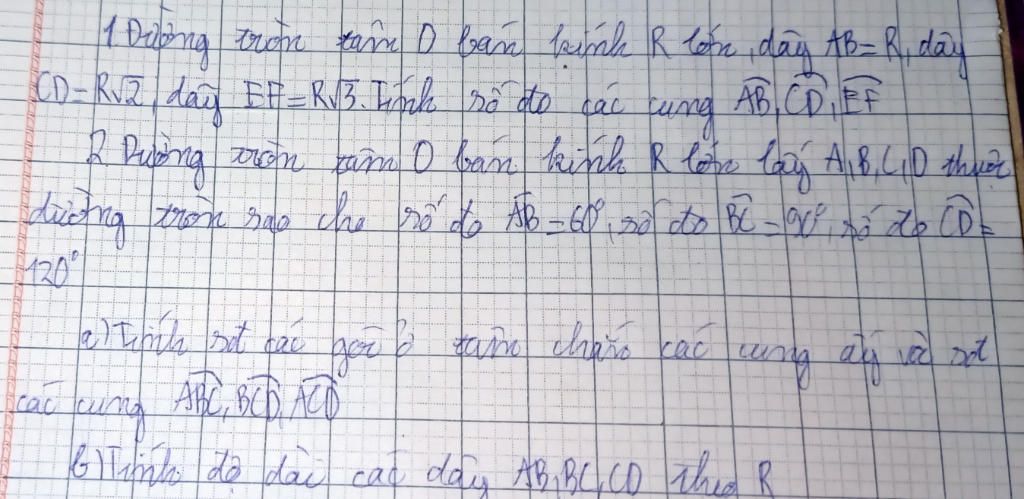 1 Đường tròn tâm O bán kính R lớn, dây AB = R, dây
CD = R√2, dây EF = R√3. Tính số đo các cung AB, CD, EF
2 Đường tròn tâm O bán kính R lớn lấy A, B, C, D thuộc
đường tròn sao cho số đo AB = 60°, số đo BC = 90°, số đo CD =
120°
a) Tính sđ các góc ở tâm chắn các cung ấy và sđ
các cung ABC, BCD, ACD
b) Tính độ dài các dây AB, BC, CD theo R